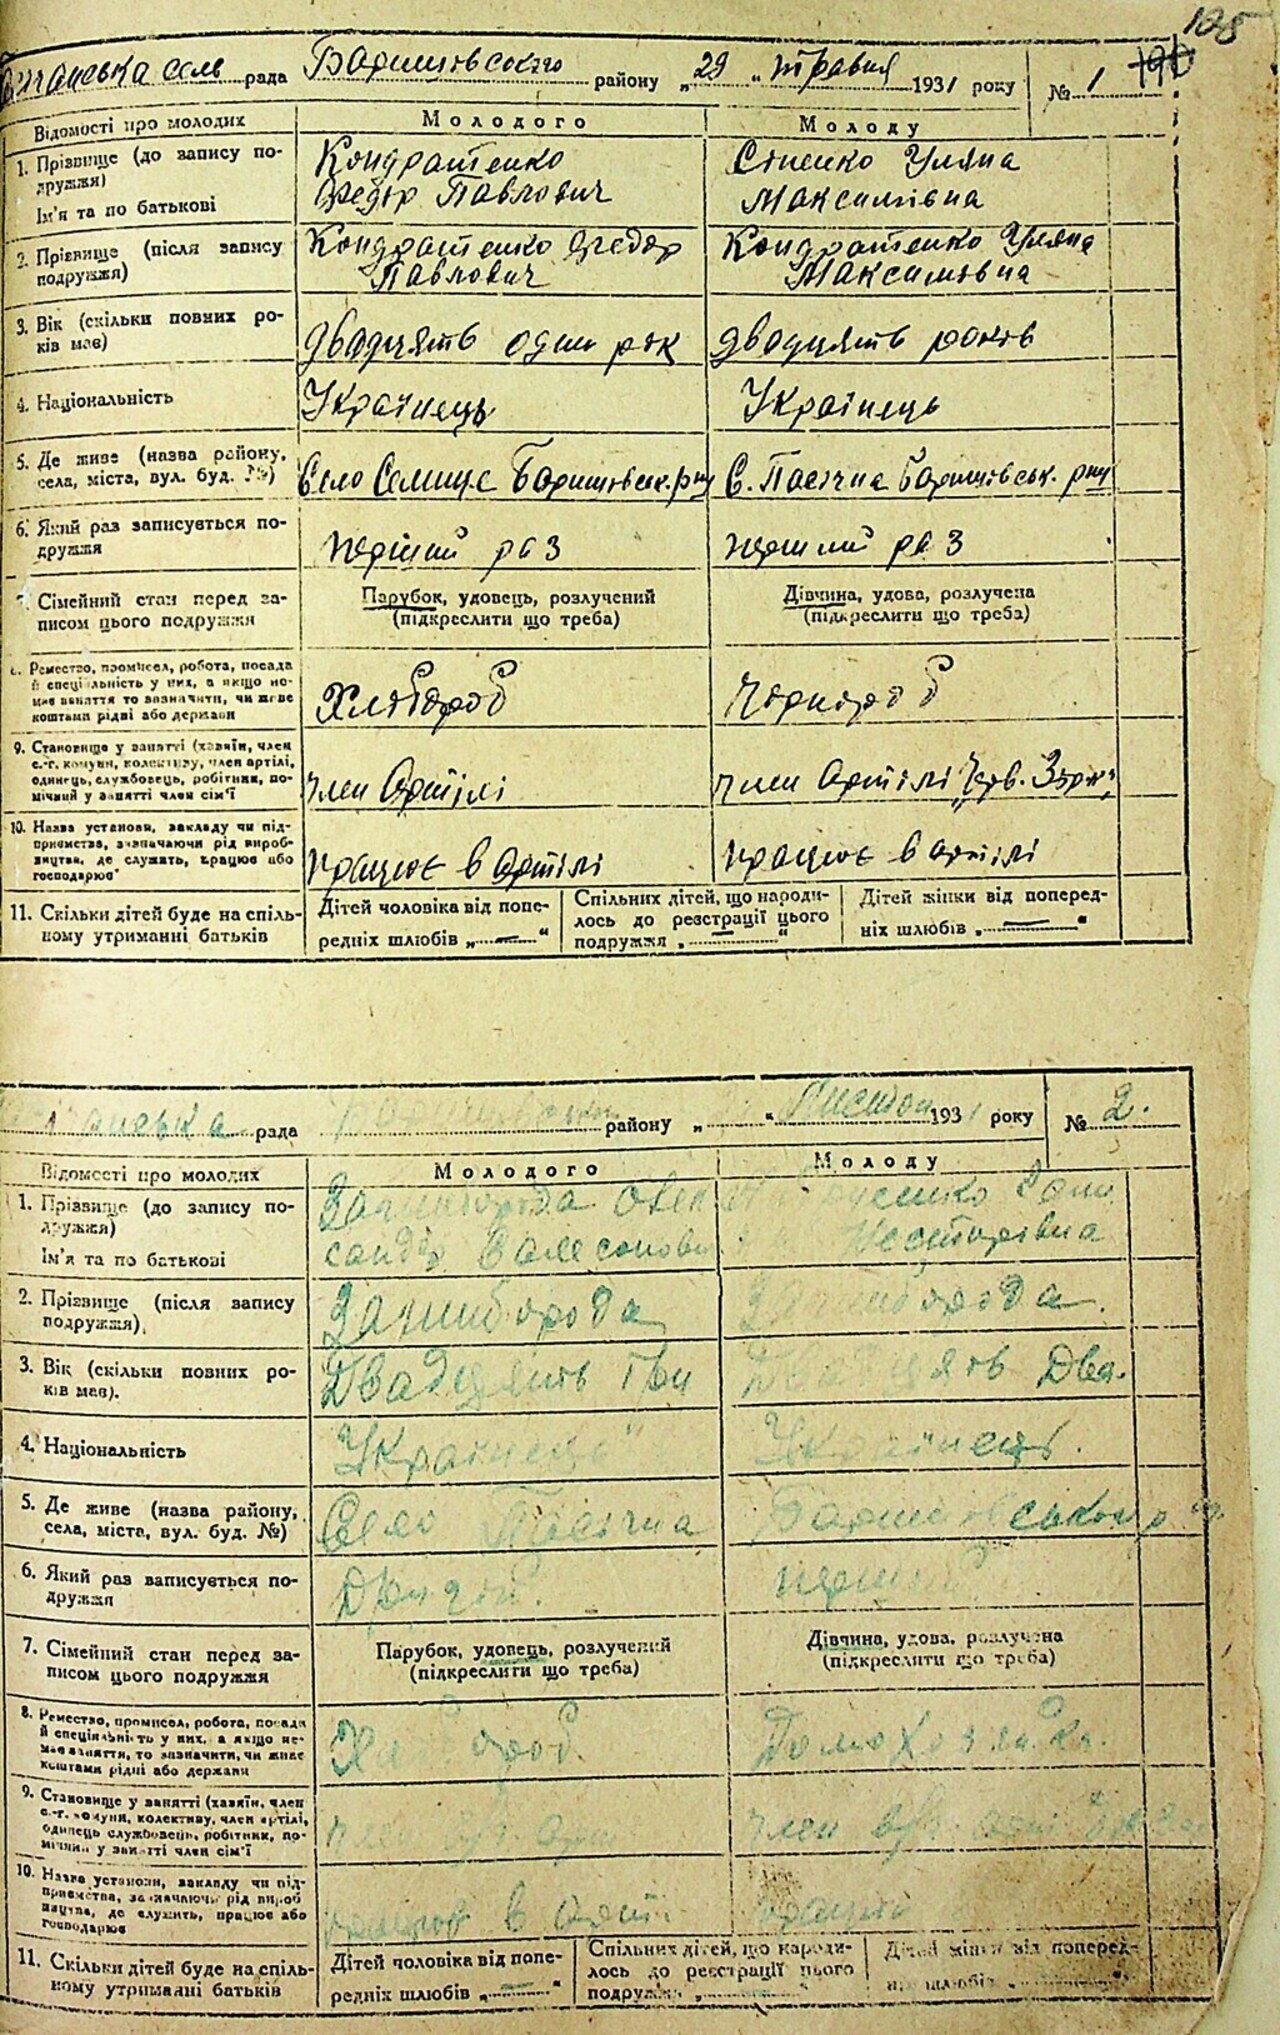 125
сель рада Баришовського району „29“ травня 1931 року № 1
Відомості про молодих Молодого Молоду
1. Прізвище (до запису по-
дружжя)
Ім'я та по батькові
Кондратенко
Федір Павлович
Уляна
Максимівна
2. Прізвище (після запису
подружжя)
Кондратенко Федор
Павлович
Кондратенко Уляна
Максимовна
3. Вік (скільки повних ро-
ків має)
двадцять один рік
двадцять років
4. Національність
Українець
Українець
5. Де живе (назва району,
села, міста, вул. буд. №)
Село Селище Баришовськ. р-ну
С. Пасічна Баришовськ. р-ну
6. Який раз записується по-
дружжя
перший раз
перший раз
7. Сімейний стан перед за-
писом цього подружжя
Парубок, удовець, розлучений
(підкреслити що треба)
Дівчина, удова, розлучена
(підкреслити що треба)
8. Ремество, промисел, робота, посада
й спеціяльність у них, а якщо не-
має заняття то зазначити, чи живе
коштами рідні або держави
Хлібороб
Чорнороб
9. Становище у занятті (хазяїн, член
с.-г. комуни, колективу, член артілі,
одинець, службовець, робітник, по-
мічний у занятті член сім'ї
член Артілі
член Артілі
10. Назва установи, закладу чи під-
приємства, зазначаючи рід вироб-
ництва, де служать, працює або
господарює
працює в артілі
працює в артілі
11. Скільки дітей буде на спіль-
ному утриманні батьків
Дітей чоловіка від попе-
редніх шлюбів „—“
Спільних дітей, що народи-
лось до реєстрації цього
подружжя „—“
Дітей жінки від поперед-
ніх шлюбів „—“
рада району „ “ 1931 року № 2.
Відомості про молодих Молодого Молоду
1. Прізвище (до запису по-
дружжя)
Ім'я та по батькові
Несторівна
2. Прізвище (після запису
подружжя)
3. Вік (скільки повних ро-
ків має).
Двадцять три
Двадцять два.
4. Національність
Українець
Українець.
5. Де живе (назва району,
села, міста, вул. буд. №)
Село Пасічна
Баришовського
6. Який раз записується по-
дружжя
Другий.
перший
7. Сімейний стан перед за-
писом цього подружжя
Парубок, удовець, розлучений
(підкреслити що треба)
Дівчина, удова, розлучена
(підкреслити що треба)
8. Ремество, промисел, робота, посада
й спеціяльність у них, а якщо не-
має заняття, то зазначити, чи живе
коштами рідні або держави
Хлібороб.
Домохозяйка.
9. Становище у занятті (хазяїн, член
с.-г. комуни, колективу, член артілі,
одинець службовець, робітник, по-
мічний у занятті член сім'ї
член
член
10. Назва установи, закладу чи під-
приємства, зазначаючи рід вироб
ництва, де служить, працює або
господарює
працює в
працює
11. Скільки дітей буде на спіль-
ному утриманні батьків
Дітей чоловіка від попе-
редніх шлюбів „—“
Спільних дітей, що народи-
лось до реєстрації цього
подружжя „ “
Дітей жінки від поперед-
ніх шлюбів „ “